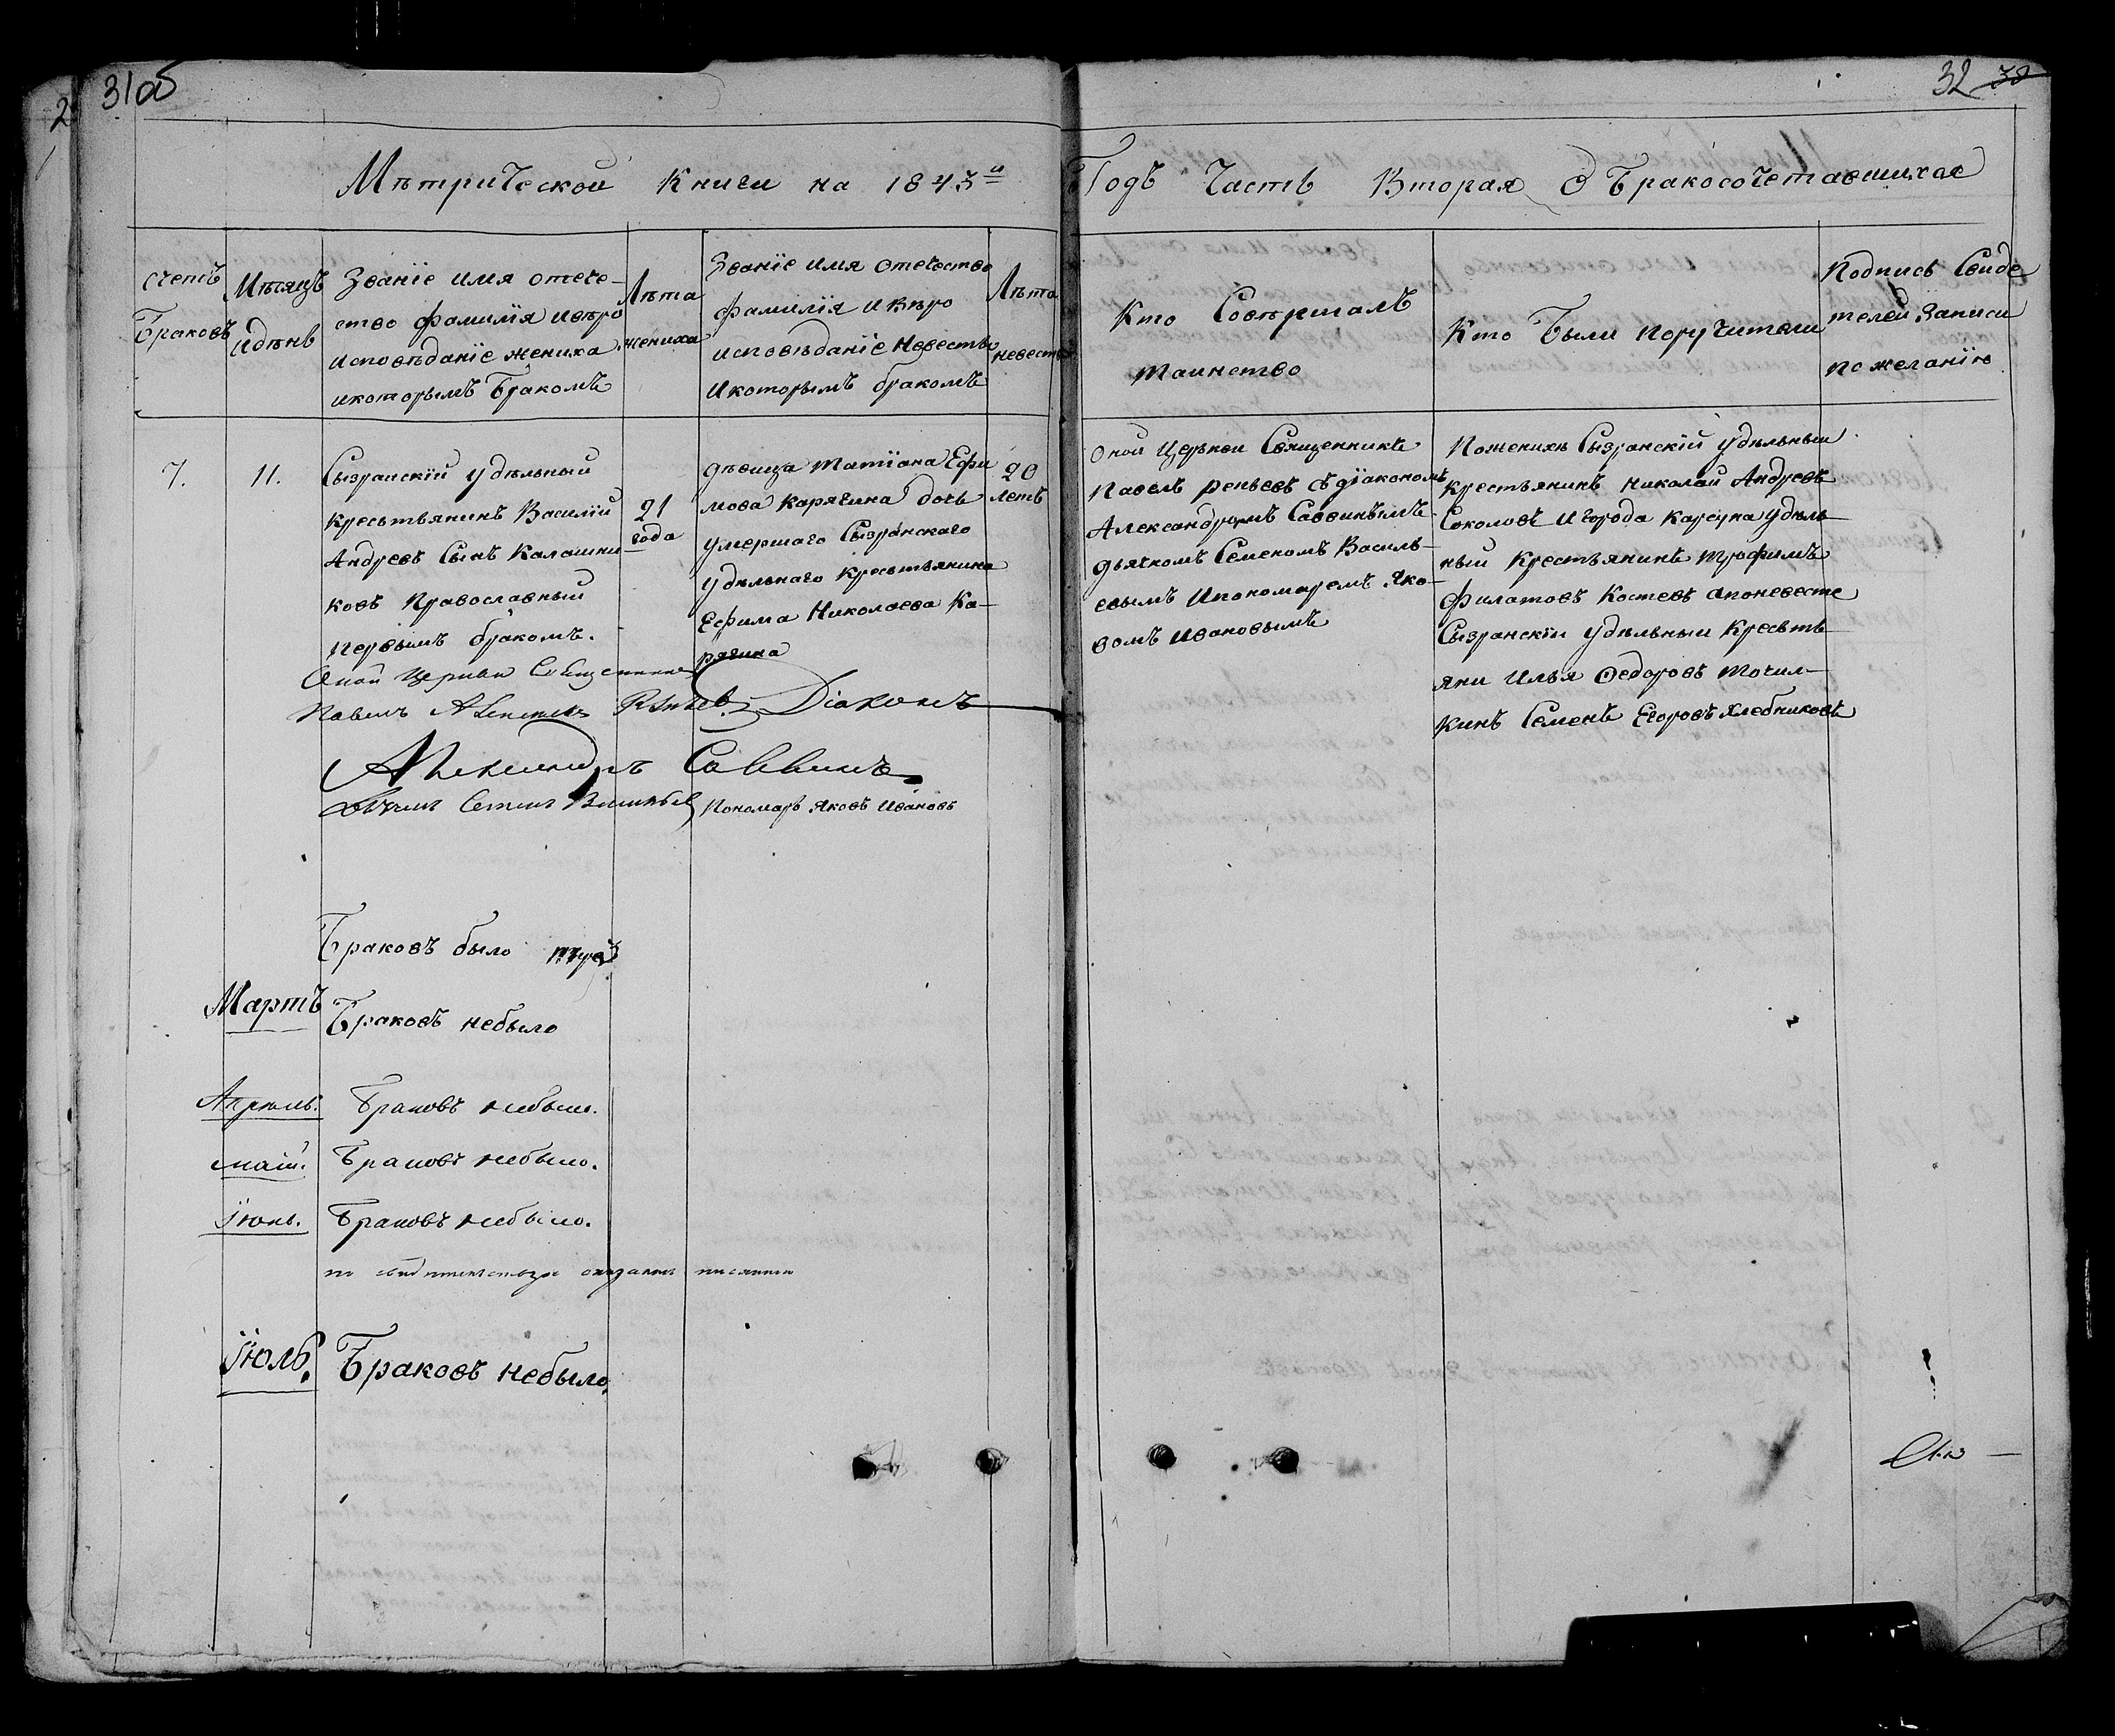 31об
32 32
Мѣтрической Книги на 1843й Годъ Часть Вторая О Бракосочетавшихся
счетъ
Браковъ
Мѣсяцъ
идѣнь
Званїе имя отече-
ство фамилїя ивѣро
исповѣданїе жениха
икоторымъ Бракомъ
Лѣта
жениха
Званїе имя отечество
фамилїя ивѣро
исповѣданїе Невесты
Икоторымъ бракомъ
Лѣта
невесты
Кто Совѣршалъ
таинство
Кто Были поручители
Подпись Свиде
телей Записи
по желанїю
7.
11.
Сызранскїй удѣльный
Кресьтьянинъ Василїй
Андревъ Сынъ Калашни
ковъ православный
первымъ бракомъ.
21
года
дѣвица Матїана Ефи
мова Карягина дочь
умершаго Сызранскаго
удѣльнаго кресьтьянина
Ефима Николаева Ка-
рягина
20
летъ
Оной Церькви Священникъ
Павелъ реньевъ съдїакономъ
Александромъ Саввинымъ
дьячкомъ Семеномъ Василь-
евымъ Ипономаремъ Яко-
вомъ Ивановымъ
Поженихъ Сызранскїй удѣльный
крестьянинъ Николай Андревъ
Соколовъ Игорода Карсуна удѣль
ный Крестьянинъ Трофимъ
Филатовъ Костевъ апоневесте
Сызранскїи удѣльныи Кресьть
яни Илья Федоровъ Точил-
кинъ Семенъ Егоровъ Хлебниковъ
Оной Церкви Священникъ
Павелъ Реньев. Дїаконъ
Александръ Саввинъ
Дьячекъ Семенъ Васильев Пономарь Яковъ Ивановъ
Браковъ было три
Мартъ Браковъ небыло
Апрель. Браковъ небыло.
маїй. Браковъ небыло.
Їюнь. Браковъ небыло.
по
Їюль. Браковъ небыло.